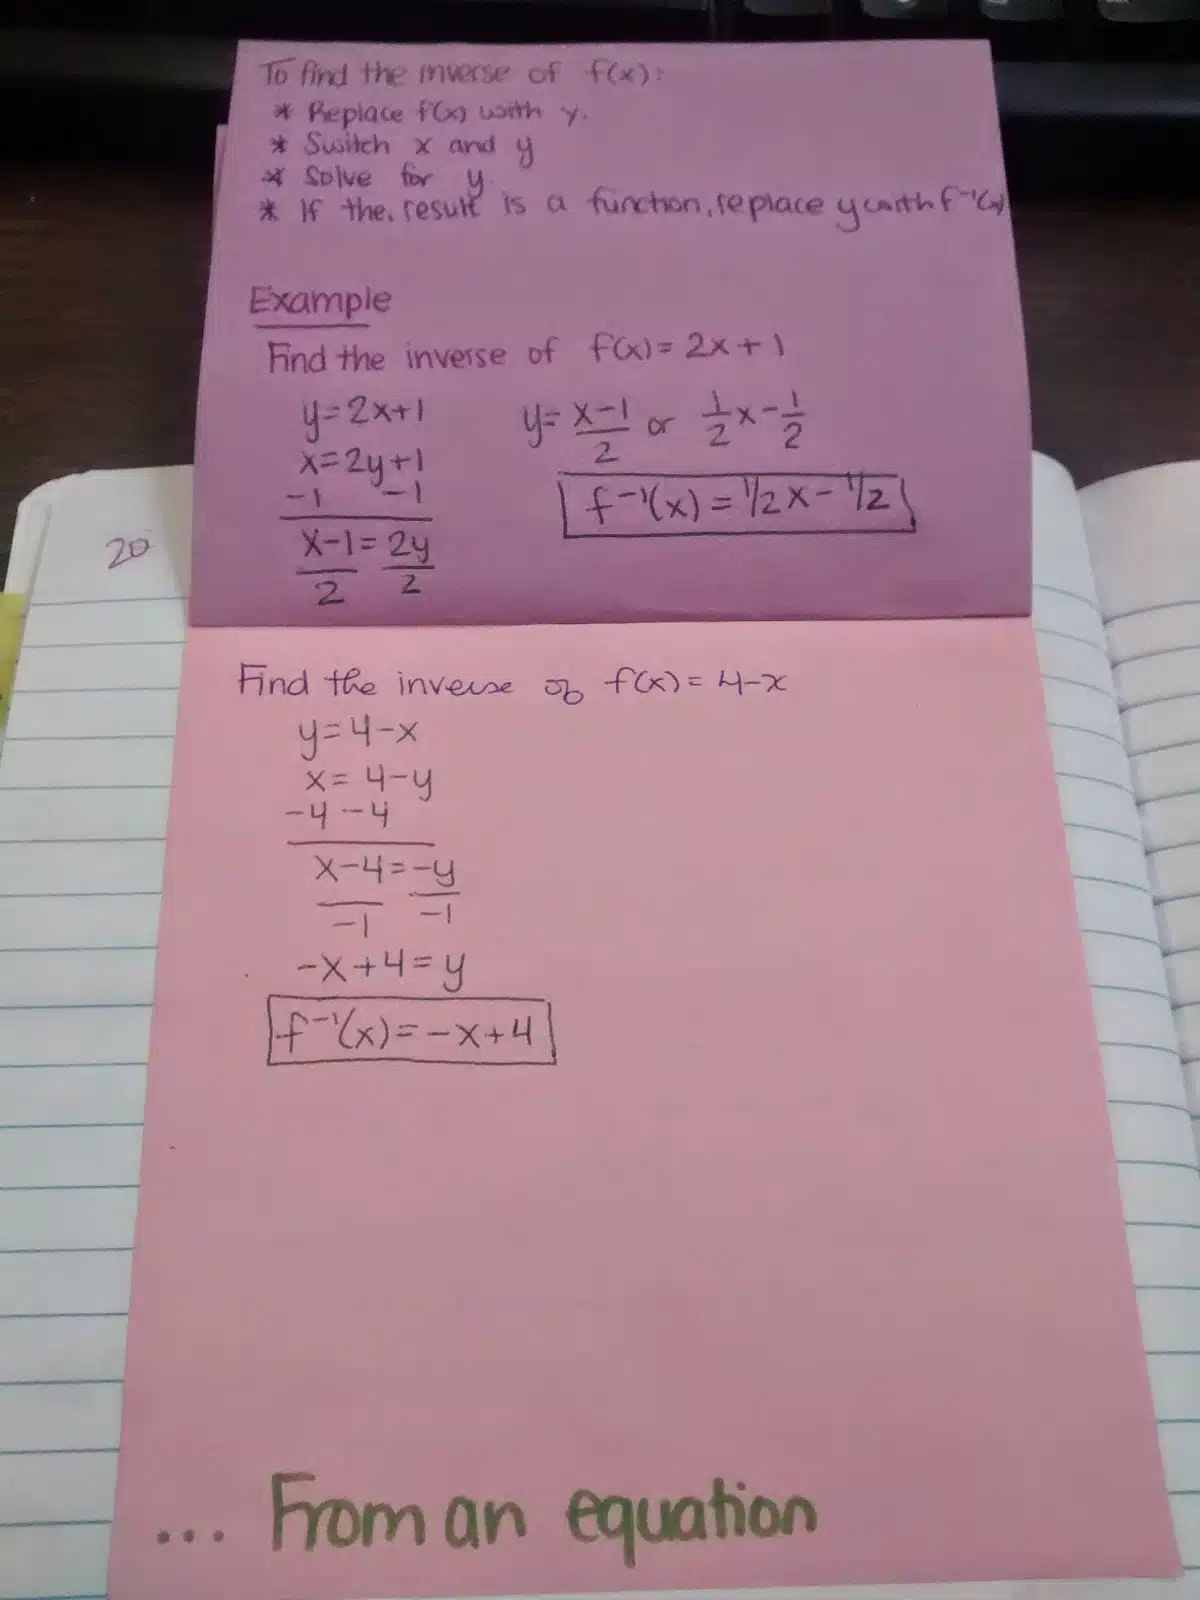 To find the inverse of f(x):
* Replace f(x) with y.
* Switch x and y
* Solve for y.
* If the result is a function, replace y with f⁻¹(x)
Example
Find the inverse of f(x) = 2x + 1
y = 2x+1
x = 2y+1
-1 -1
x-1 = 2y
2 2
y = x-1/2 or 1/2 x - 1/2
f⁻¹(x) = 1/2 x - 1/2
20
Find the inverse of f(x) = 4-x
y = 4-x
x = 4-y
-4 -4
x-4 = -y
-1 -1
-x+4 = y
f⁻¹(x) = -x+4
... From an equation